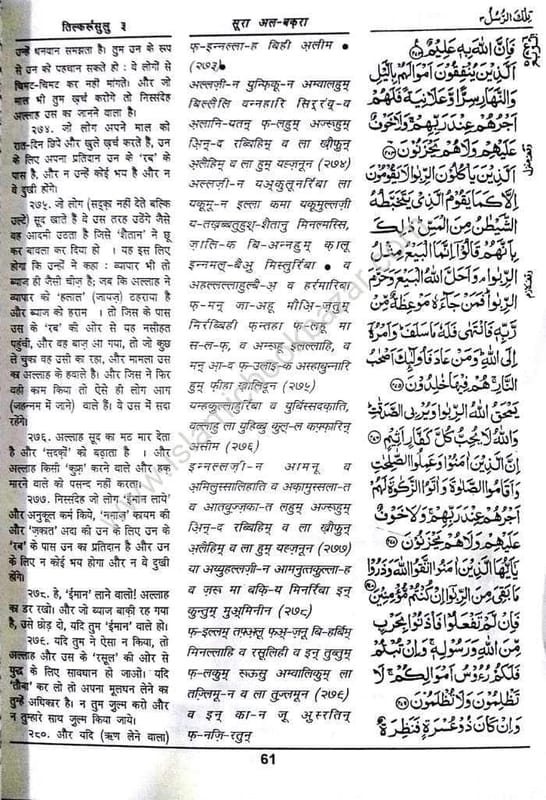 तिल्कर्रुसुलु ३
सूरा अल-बक़रा
تِلْكَ الرُّسُلُ ٣
उन्हें धनवान समझता है। तुम उन के रूप
से उन को पहचान सकते हो : वे लोगों से
चिमट-चिमट कर नहीं मांगते। और जो
माल भी तुम ख़र्च करोगे तो निस्संदेह
अल्लाह उस का जानने वाला है।
२७४. जो लोग अपने माल को
रात-दिन छिपे और खुले ख़र्च करते है, उन
के लिए अपना प्रतिदान उन के 'रब' के
पास है, और न उन्हें कोई भय है और न
वे दुखी होंगे।
२७५. जो लोग (सद्क़ा नहीं देते बल्कि
उल्टे) सूद खाते हैं वे उस तरह उठेंगे जैसे
वह आदमी उठता है जिसे 'शैतान' ने छू
कर बावला कर दिया हो । यह इस लिए
होगा कि उन्होंने ने कहा : व्यापार भी तो
ब्याज ही जैसी चीज़ है; जब कि अल्लाह ने
व्यापार को 'हलाल' (जायज़) ठहराया है
और ब्याज को हराम । तो जिस के पास
उस के 'रब' की ओर से यह नसीहत
पहुंची, और वह बाज़ आ गया, तो जो कुछ
ले चुका वह उसी का रहा, और मामला उस
का अल्लाह के हवाले है। और जिस ने फिर
वही काम किया तो ऐसे ही लोग आग
(जहन्नम में जाने) वाले हैं। वे उस में सदा
रहेंगे।
२७६. अल्लाह सूद का मठ मार देता
है और 'सदक़ों' को बढ़ाता है । और
अल्लाह किसी 'कुफ़्र' करने वाले और हक़
मारने वाले को पसन्द नहीं करता।
२७७. निस्संदेह जो लोग 'ईमान लाये'
और अनुकूल कर्म किये, 'नमाज़' क़ायम की
और 'ज़कात' अदा की उन के लिए उन के
'रब' के पास उन का प्रतिदान है और उन
के लिए न कोई भय होगा और न वे दुखी
होंगे।
२७८. हे, 'ईमान' लाने वालो! अल्लाह
का डर रखो। और जो ब्याज बाक़ी रह गया
है, उसे छोड़ दो, यदि तुम 'ईमान' वाले हो।
२७९. यदि तुम ने ऐसा न किया, तो
अल्लाह और उस के 'रसूल' की ओर से
युद्ध के लिए सावधान हो जाओ। यदि
'तौबा' कर लो तो अपना मूलधन लेने का
तुम्हें अधिकार है। न तुम जुल्म करो और
न तुम्हारे साथ जुल्म किया जाये।
२८०. और यदि (ऋण लेने वाला)
फ़-इन्नल्ला-ह बिही अलीम ०
(२७३)
अल्लज़ी-न युन्फ़िक़ू-न अम्वालहुम्
बिल्लैलि वन्नहारि सिर्रंव्-व
अलानि-यतन् फ़-लहुम् अज्रुहुम्
अ़िन्-द रब्बिहिम् व ला ख़ौफ़ुन्
अलैहिम् व ला हुम् यह्ज़नून (२७४)
अल्लज़ी-न यअ्कुलूनर्रिबा ला
यक़ूमू-न इल्ला कमा यक़ूमुल्लज़ी
य-तख़ब्बतुहुश्-शैतानु मिनल्मस्सि,
ज़ालि-क बि-अन्नहुम् क़ालू
इन्नमल्-बैअु मिस्लुर्रिबा ० व
अहल्लल्लाहुल्बै-अ़ व हर्रमर्रिबा
फ़-मन् जा-अहू मौअ़ि-ज़तुम्
मिर्रब्बिही फ़न्तहा फ़-लहू मा
स-ल-फ़, व अम्रुहू इलल्लाहि, व
मन् आ-द फ़-उलाइ-क अस्हाबुन्नारि
हुम् फ़ीहा ख़ालिदून (२७५)
यम्हक़ुल्लाहुर्रिबा व युर्बिस्सदक़ाति,
वल्लाहु ला युहिब्बु कुल्-ल कफ़्फ़ारिन्
असीम (२७६)
इन्नल्लज़ी-न आमनू व
अमिलुस्सालिहाति व अक़ामुस्सला-त
व आतवुज़्ज़का-त लहुम् अज्रुहुम्
अ़िन्-द रब्बिहिम् व ला ख़ौफ़ुन्
अलैहिम् व ला हुम् यह्ज़नून (२७७)
या अय्युहल्लज़ी-न आमनुत्तक़ुल्ला-ह
व ज़रू मा बक़ि-य मिनर्रिबा इन्
कुन्तुम् मुअ्मिनीन (२७८)
फ़-इल्लम् तफ़्अलू फ़अ्-ज़नू बि-हर्बिम्
मिनल्लाहि व रसूलिही व इन् तुब्तुम्
फ़-लकुम् रुऊसु अम्वालिकुम् ला
तज़्लिमू-न व ला तुज़्लमून (२७९)
व इन् का-न ज़ू अुस्रतिन्
फ़-नज़ि-रतुन्
فَإِنَّ اللهَ بِهِ عَلِيْمٌ
اَلَّذِيْنَ يُنْفِقُوْنَ اَمْوَالَهُمْ بِالَّيْلِ
وَالنَّهَارِ سِرًّا وَّعَلَانِيَةً فَلَهُمْ
اَجْرُهُمْ عِنْدَ رَبِّهِمْ وَلَا خَوْفٌ
عَلَيْهِمْ وَلَا هُمْ يَحْزَنُوْنَ
اَلَّذِيْنَ يَأْكُلُوْنَ الرِّبٰوا لَا يَقُوْمُوْنَ
اِلَّا كَمَا يَقُوْمُ الَّذِيْ يَتَخَبَّطُهُ
الشَّيْطٰنُ مِنَ الْمَسِّ ذٰلِكَ
بِاَنَّهُمْ قَالُوْا اِنَّمَا الْبَيْعُ مِثْلُ
الرِّبٰوا وَاَحَلَّ اللهُ الْبَيْعَ وَحَرَّمَ
الرِّبٰوا فَمَنْ جَآءَهٗ مَوْعِظَةٌ مِّنْ
رَّبِّهٖ فَانْتَهٰى فَلَهٗ مَا سَلَفَ وَاَمْرُهٗ
اِلَى اللهِ وَمَنْ عَادَ فَاُولٰٓئِكَ اَصْحٰبُ
النَّارِ هُمْ فِيْهَا خٰلِدُوْنَ
يَمْحَقُ اللهُ الرِّبٰوا وَيُرْبِي الصَّدَقٰتِ
وَاللهُ لَا يُحِبُّ كُلَّ كَفَّارٍ اَثِيْمٍ
اِنَّ الَّذِيْنَ اٰمَنُوْا وَعَمِلُوا الصّٰلِحٰتِ
وَاَقَامُوا الصَّلٰوةَ وَاٰتَوُا الزَّكٰوةَ لَهُمْ
اَجْرُهُمْ عِنْدَ رَبِّهِمْ وَلَا خَوْفٌ
عَلَيْهِمْ وَلَا هُمْ يَحْزَنُوْنَ
يٰٓاَيُّهَا الَّذِيْنَ اٰمَنُوا اتَّقُوا اللهَ وَذَرُوْا
مَا بَقِيَ مِنَ الرِّبٰوا اِنْ كُنْتُمْ مُّؤْمِنِيْنَ
فَاِنْ لَّمْ تَفْعَلُوْا فَأْذَنُوْا بِحَرْبٍ
مِّنَ اللهِ وَرَسُوْلِهٖ وَاِنْ تُبْتُمْ
فَلَكُمْ رُءُوْسُ اَمْوَالِكُمْ لَا
تَظْلِمُوْنَ وَلَا تُظْلَمُوْنَ
وَاِنْ كَانَ ذُوْ عُسْرَةٍ فَنَظِرَةٌ
61
www.islamicbookbazar.com